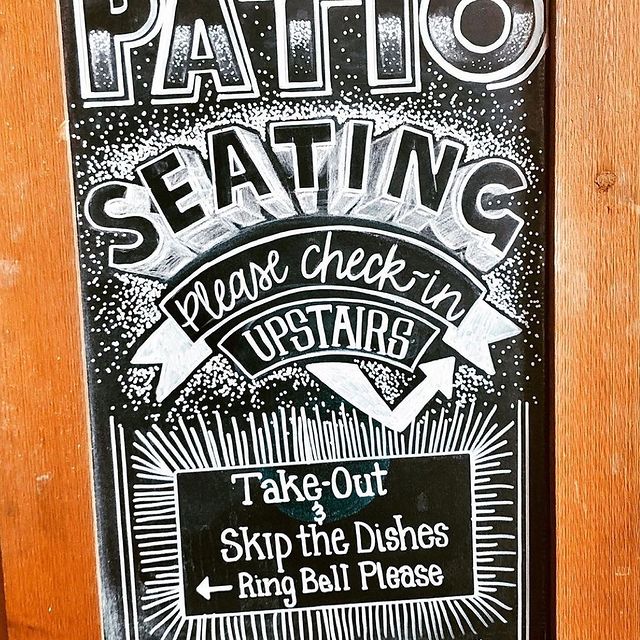 PATIO
SEATING
please check-in
UPSTAIRS
Take-Out
&
Skip the Dishes
← Ring Bell Please